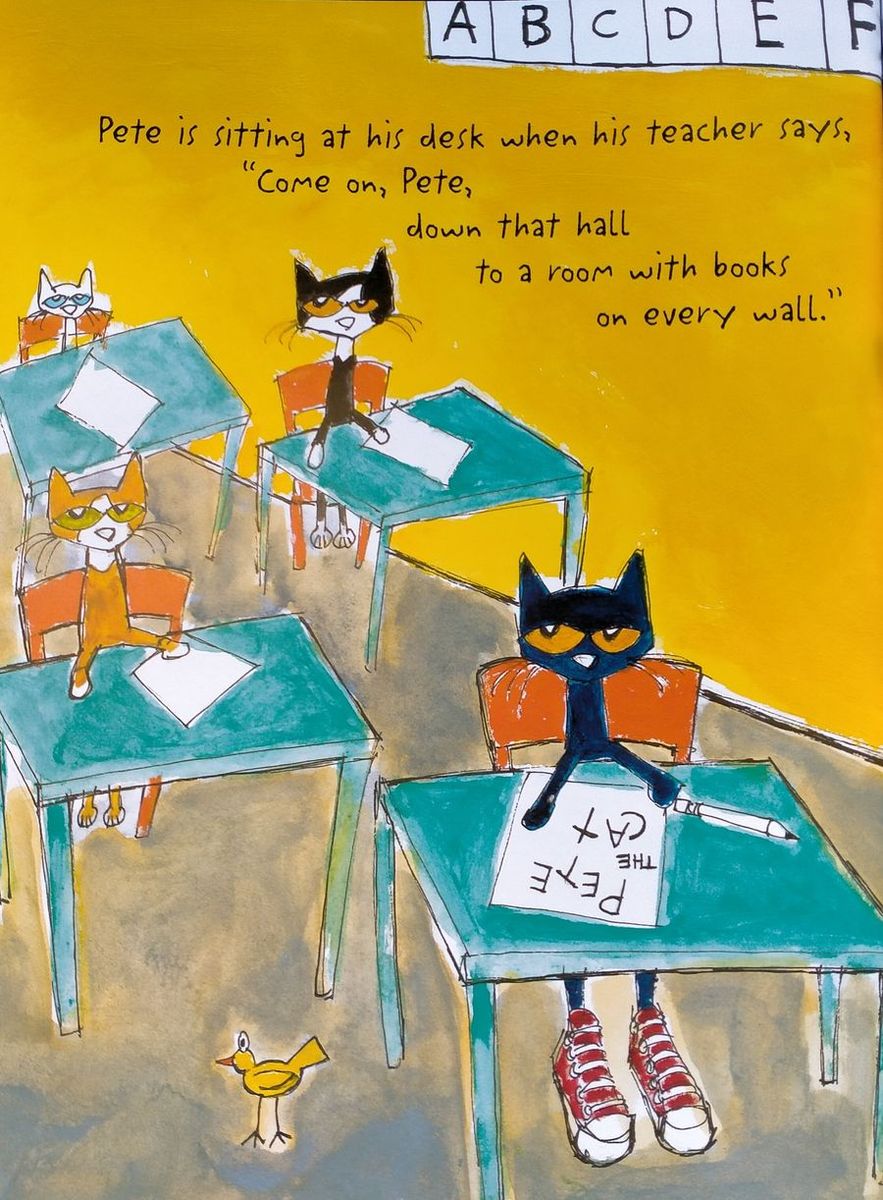 A B C D E F
Pete is sitting at his desk when his teacher says,
"Come on, Pete,
down that hall
to a room with books
on every wall."
PETE
THE
CAT